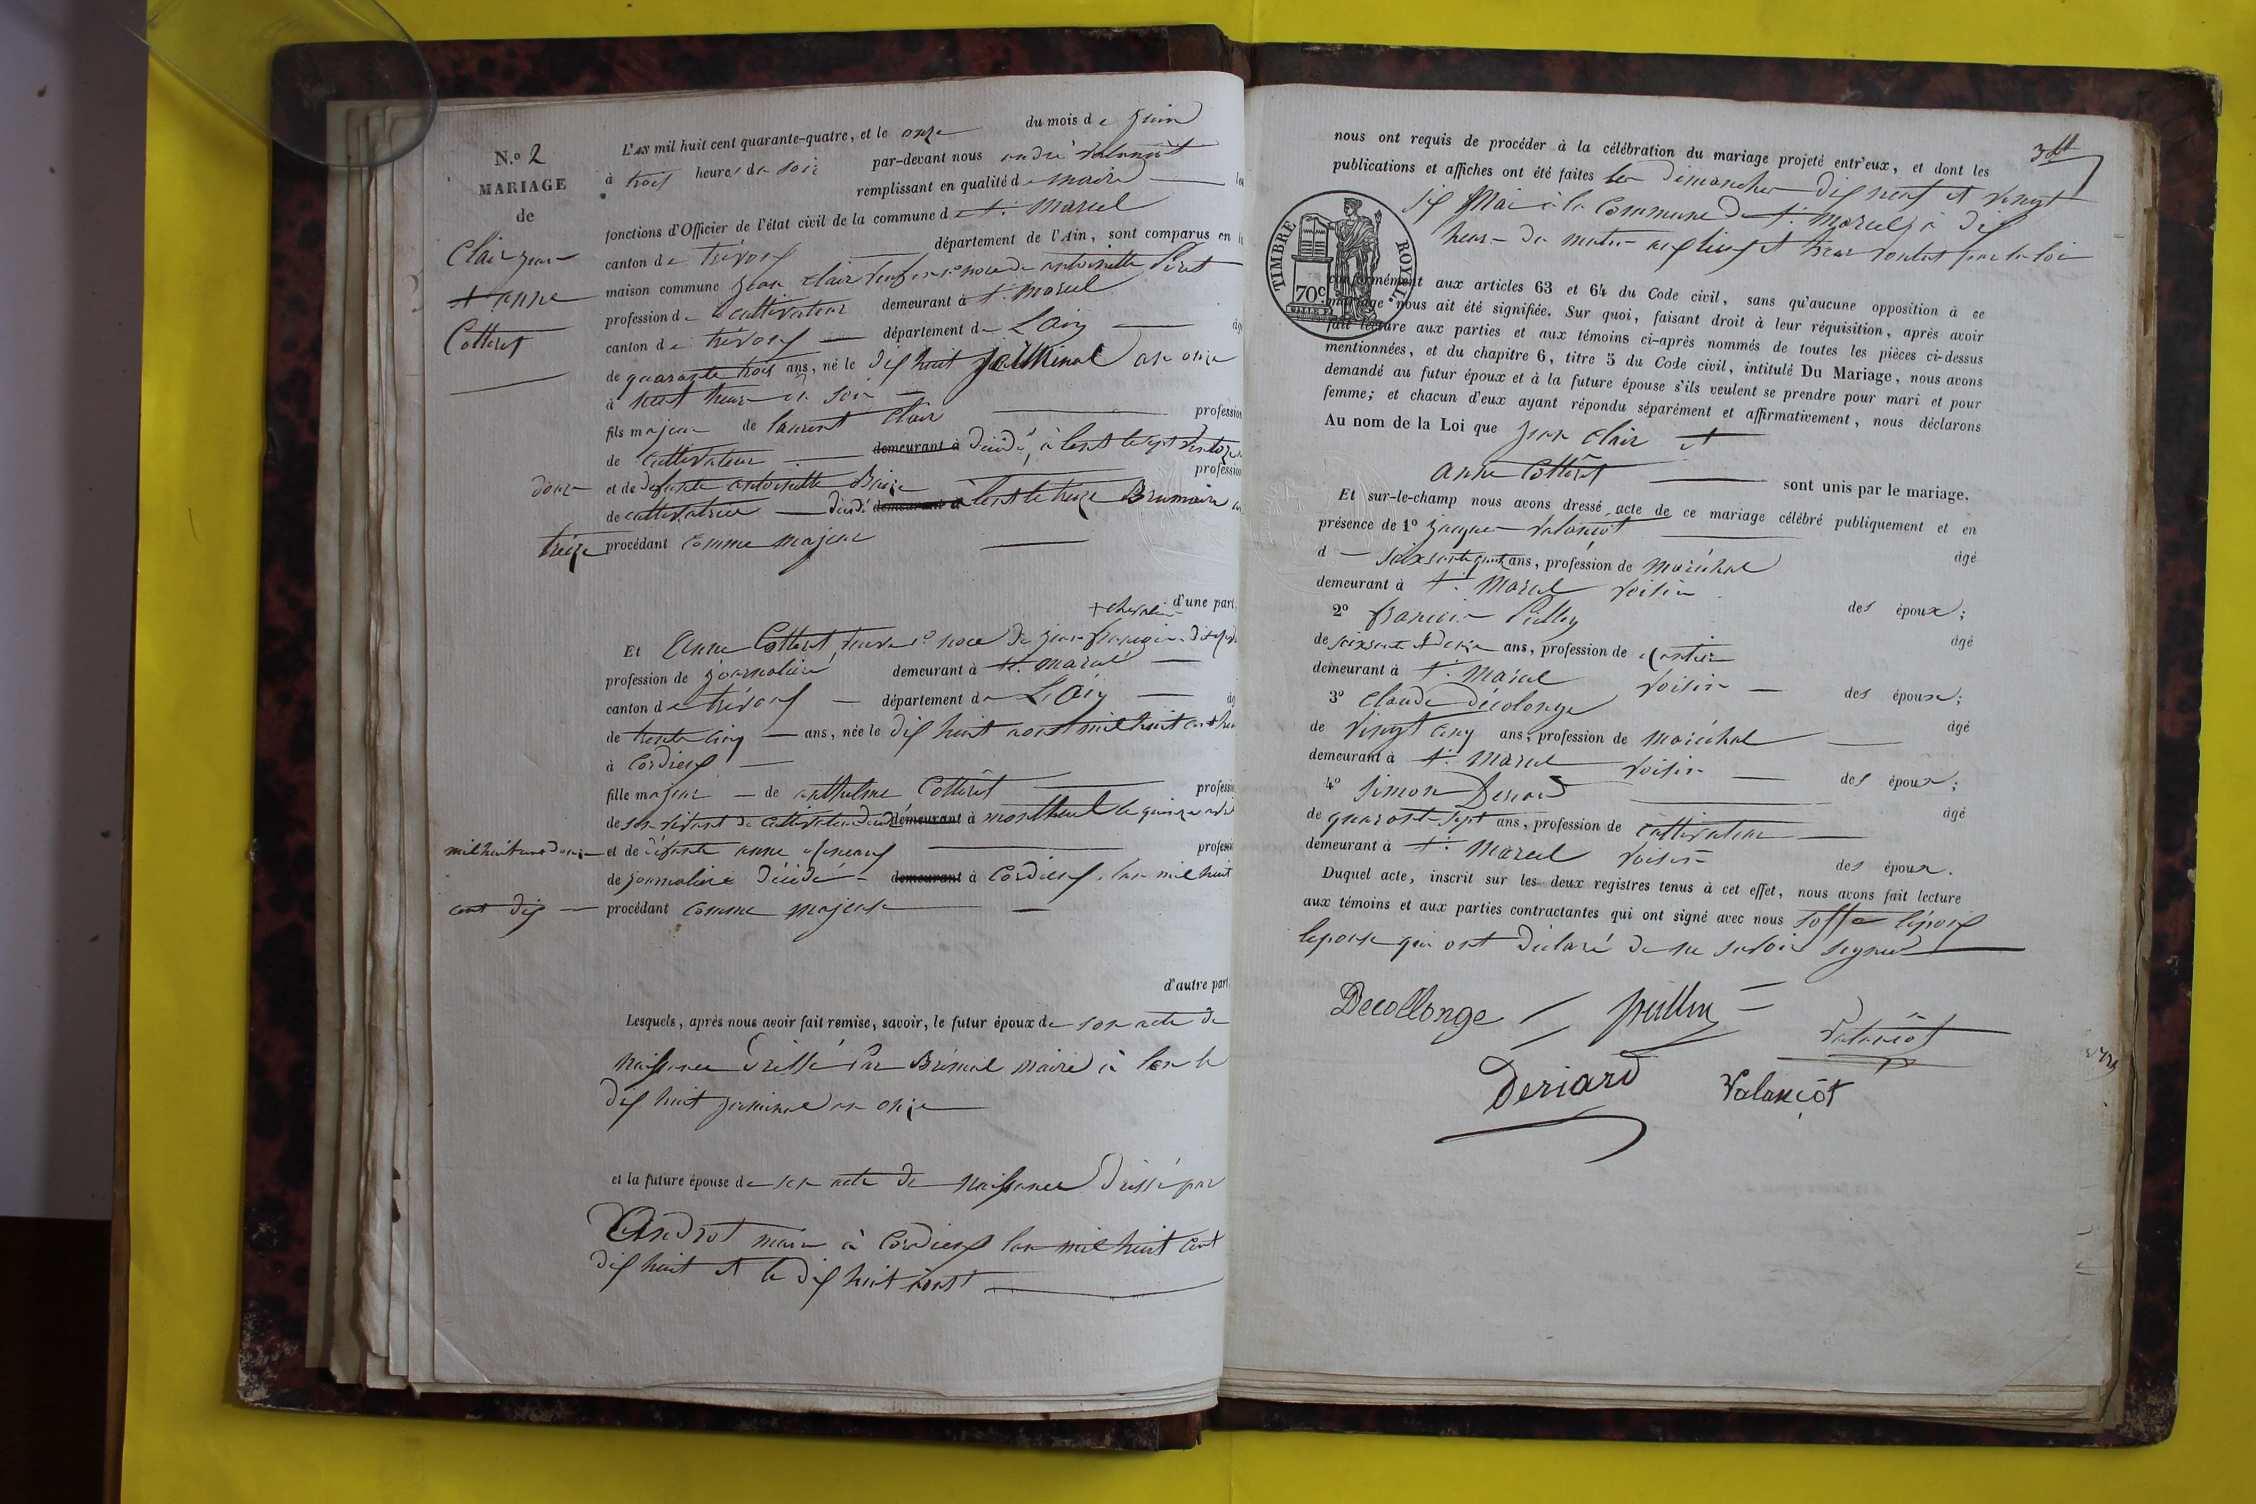 N.º 2
MARIAGE
de
Clair jean
et anne
Cotteret
L'AN mil huit cent quarante-quatre, et le onze du mois de Juin
à trois heures du soir par-devant nous andré Valançot
remplissant en qualité de maire les
fonctions d'Officier de l'état civil de la commune de St. Marcel
canton de trévoux département de l'Ain, sont comparus en la
maison commune jean clair de antoinette
profession de cultivateur demeurant à St. Marcel
canton de trévoux département de L'ain
de quarante trois ans, né le dix huit germinal an onze
à heure du soir
fils majeur de laurent clair profession
de cultivateur demeurant à
douze et de défunte antoinette profession
de cultivatrice demeurant à le treize Brumaire an
treize procédant comme majeur
d'une part,
+ chevalier
Et anne Cotteret, de jean françois
profession de journalière demeurant à St. Marcel
canton de trévoux département de L'Ain
de trente cinq ans, née le dix huit aoust mil huit cent
à Cordieux
fille majeure de anthelme Cotteret
de son vivant de cultivateur demeurant à monthuel le quinze
mil huit cent douze et de défunte anne
de journalière décédé demeurant à Cordieux, l'an mil huit
cent dix procédant comme majeure
d'autre part.
Lesquels, après nous avoir fait remise, savoir, le futur époux de son acte de
naissance dressé par maire à le
dix huit germinal an onze
et la future épouse de son acte de naissance dressé par
maire à Cordieux l'an mil huit cent
dix huit et le dix huit aoust
nous ont requis de procéder à la célébration du mariage projeté entr'eux, et dont les
publications et affiches ont été faites les dimanches dix neuf et vingt
six Mai à la Commune de St. Marcel à dix
heure du matin aux lieux et heure voulus par la loi
TIMBRE ROYAL.
70c
conformément aux articles 63 et 64 du Code civil, sans qu'aucune opposition à ce
mariage nous ait été signifiée. Sur quoi, faisant droit à leur réquisition, après avoir
fait lecture aux parties et aux témoins ci-après nommés de toutes les pièces ci-dessus
mentionnées, et du chapitre 6, titre 5 du Code civil, intitulé Du Mariage, nous avons
demandé au futur époux et à la future épouse s'ils veulent se prendre pour mari et pour
femme; et chacun d'eux ayant répondu séparément et affirmativement, nous déclarons
Au nom de la Loi que jean clair et
anne Cotteret sont unis par le mariage.
Et sur-le-champ nous avons dressé acte de ce mariage célébré publiquement et en
présence de 1º jaque Valançot âgé
d ans, profession de maréchal
demeurant à St. Marcel voisin des époux;
2º françois âgé
de soixante et ans, profession de rentier
demeurant à St. Marcel voisin des époux;
3º Claude décolonge âgé
de vingt cinq ans, profession de maréchal
demeurant à St. Marcel voisin des époux;
4º Simon Deriard âgé
de quarante sept ans, profession de cultivateur
demeurant à St. Marcel voisin des époux.
Duquel acte, inscrit sur les deux registres tenus à cet effet, nous avons fait lecture
aux témoins et aux parties contractantes qui ont signé avec nous l'époux
l'epouse qui ont déclaré de ne savoir signer
Decollonge
Valançot
Deriard Valançot